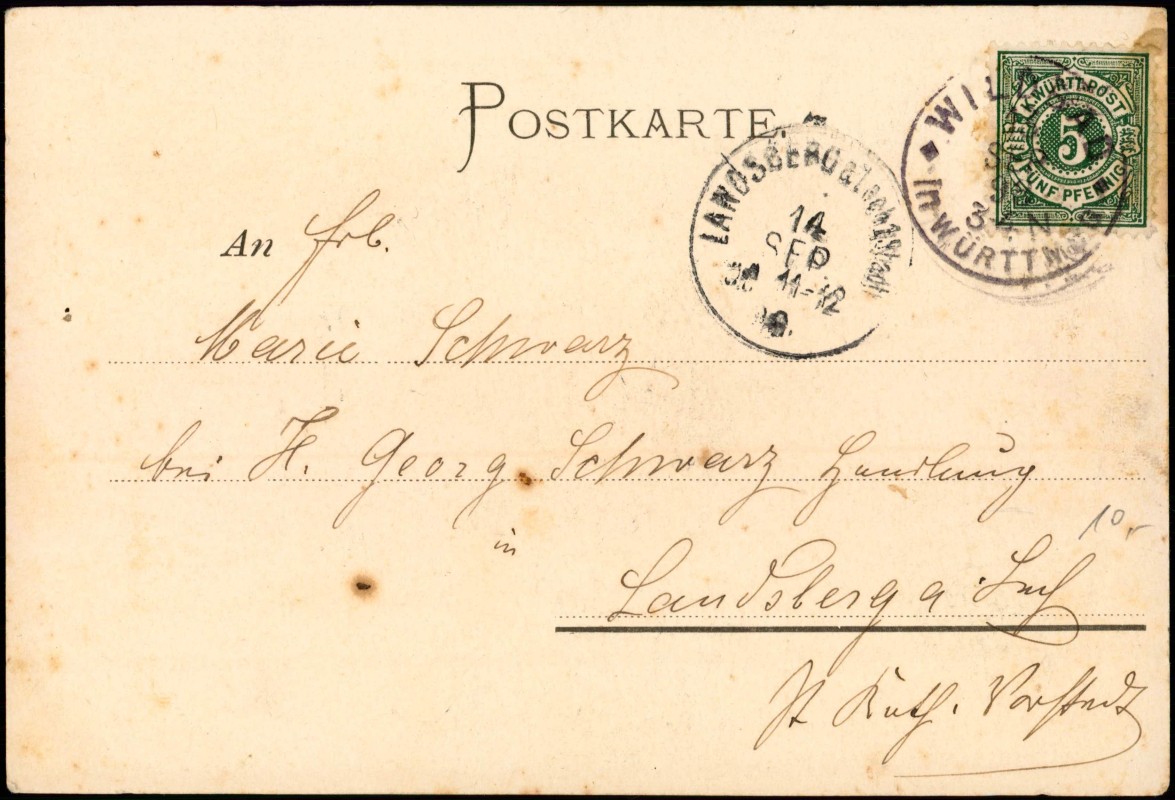 POSTKARTE.
K. WÜRTT. POST
5
FÜNF PFENNIG
WILDBAD
3-4 N
in WÜRTTMBG
LANDSBERG a/Lech 1 (Stadt)
14
SEP
11-12
An Frl.
Marie Schwarz
bei H. Georg Schwarz Handlung
in
10,-
Landsberg a Lech
St Kath. Vorstadt